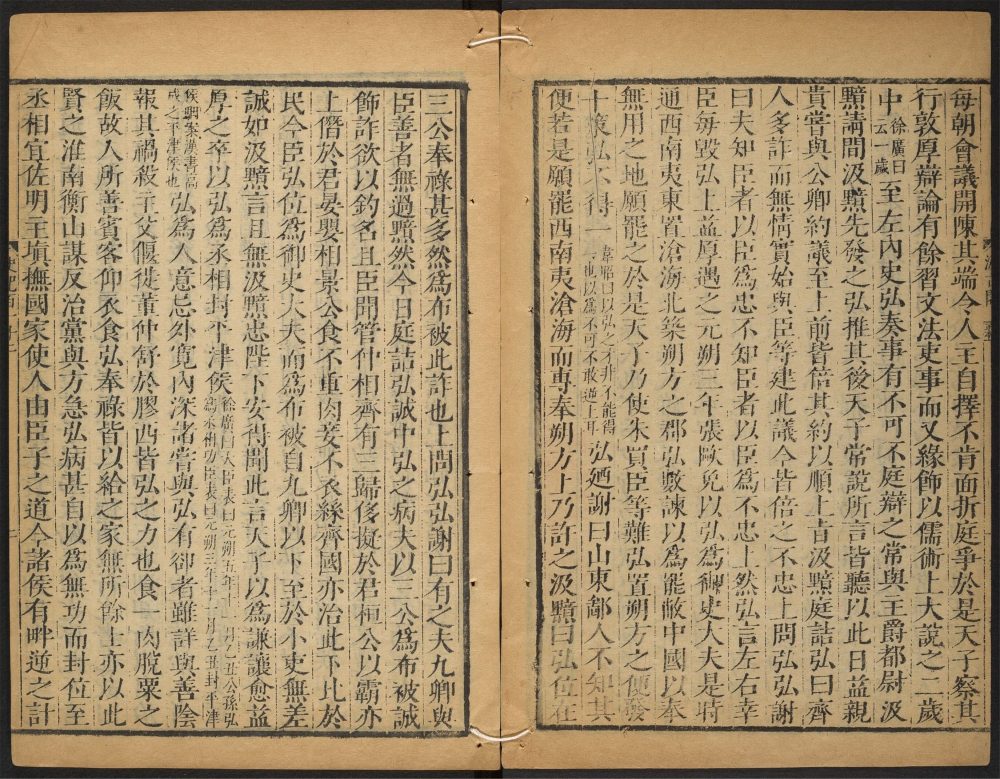 每朝會議開陳其端令人主自擇不肯面折庭爭於是天子察其
行敦厚辯論有餘習文法吏事而又緣飾以儒術上大說之二歲
中徐廣曰云一歲至左內史弘奏事有不可不庭辯之常與主爵都尉汲
黯請間汲黯先發之弘推其後天子常說所言皆聽以此日益親
貴嘗與公卿約議至上前皆倍其約以順上旨汲黯庭詰弘曰齊
人多詐而無情實始與臣等建此議今皆倍之不忠上問弘弘謝
曰夫知臣者以臣爲忠不知臣者以臣爲不忠上然弘言左右幸
臣每毀弘上益厚遇之元朔三年張歐免以弘爲御史大夫是時
通西南夷東置滄海北築朔方之郡弘數諫以爲罷敝中國以奉
無用之地願罷之於是天子乃使朱買臣等難弘置朔方之便發
十策弘不得一韋昭曰以弘之才非不能得一也以爲不可不敢逆上耳弘廼謝曰山東鄙人不知其
便若是願罷西南夷滄海而專奉朔方上乃許之汲黯曰弘位在
三公奉祿甚多然爲布被此詐也上問弘弘謝曰有之夫九卿與
臣善者無過黯然今日庭詰弘誠中弘之病夫以三公爲布被誠
飾詐欲以釣名且臣聞管仲相齊有三歸侈擬於君桓公以霸亦
上僭於君晏嬰相景公食不重肉妾不衣絲齊國亦治此下比於
民今臣弘位爲御史大夫而爲布被自九卿以下至於小吏無差
誠如汲黯言且無汲黯忠陛下安得聞此言天子以爲謙讓愈益
厚之卒以弘爲丞相封平津侯徐廣曰大臣表曰元朔五年十一月乙丑公孫弘爲丞相功臣表曰元朔三年十一月乙丑封平津
侯駰案漢書高成之平津侯也弘爲人意忌外寬內深諸嘗與弘有郤者雖詳與善陰
報其禍殺主父偃徙董仲舒於膠西皆弘之力也食一肉脫粟之
飯故人所善賓客仰衣食弘奉祿皆以給之家無所餘士亦以此
賢之淮南衡山謀反治黨與方急弘病甚自以爲無功而封位至
丞相宜佐明主塡撫國家使人由臣子之道今諸侯有畔逆之計